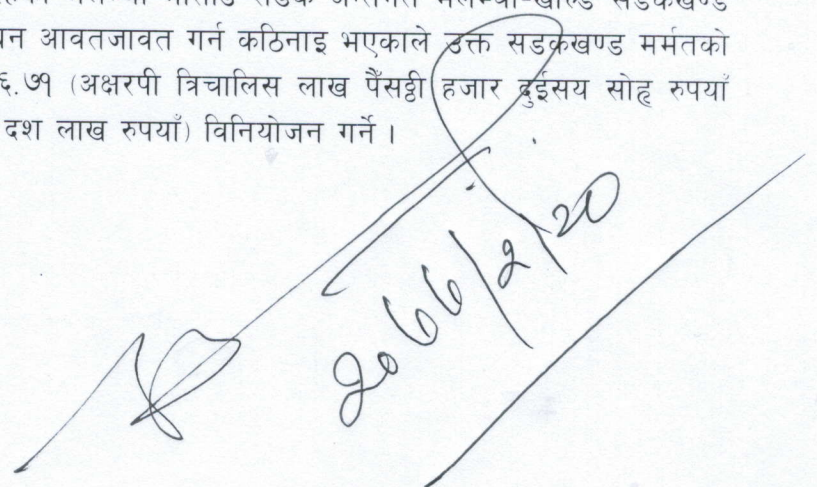 सडकखण्ड
आवतजावत गर्न कठिनाइ भएकाले उक्त सडकखण्ड मर्मतको
६.७१ (अक्षरपी त्रिचालिस लाख पैंसट्ठी हजार दुईसय सोह्र रुपयाँ
दश लाख रुपयाँ) विनियोजन गर्ने ।
२०६६/२/२०